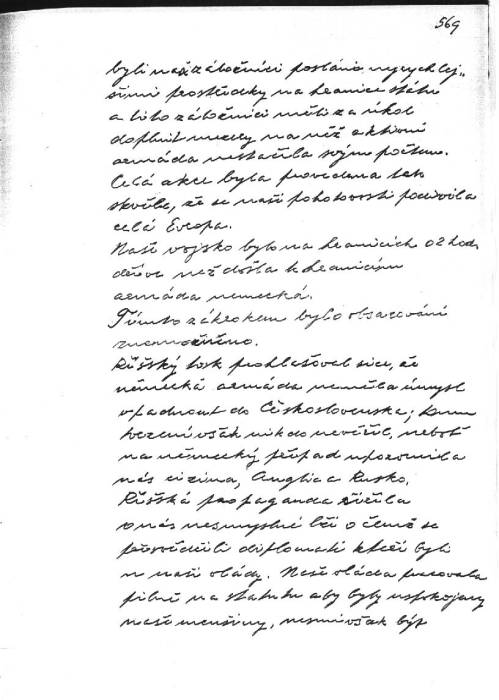 569
byli naši záložníci posláni nejrychlej-
šími prostředky na hranice státu
a tito záložníci měli za úkol
doplnit mezery na něž aktivní
armáda nestačila svým počtem.
Celá akce byla provedena tak
skvěle, že se naší pohotovosti podivila
celá Evropa.
Naše vojsko bylo na hranicích o 2 hod.
dříve než došla k hranicím
armáda německá.
Tímto zákrokem bylo obsazování
znemožněno.
Říšský tisk prohlašoval sice, že
německá armáda neměla úmysl
vpadnout do Československa;
však nikdo nevěřil, neboť
na německý přepad upozornila
nás cizina, Anglie a Rusko.
Říšská propaganda šířila
o nás nesmyslné lži o čemž se
přesvědčili diplomati kteří byli
u naší vlády. Naše vláda pracovala
pilně na statutu aby byly uspokojeny
naše menšiny, nesmí však být